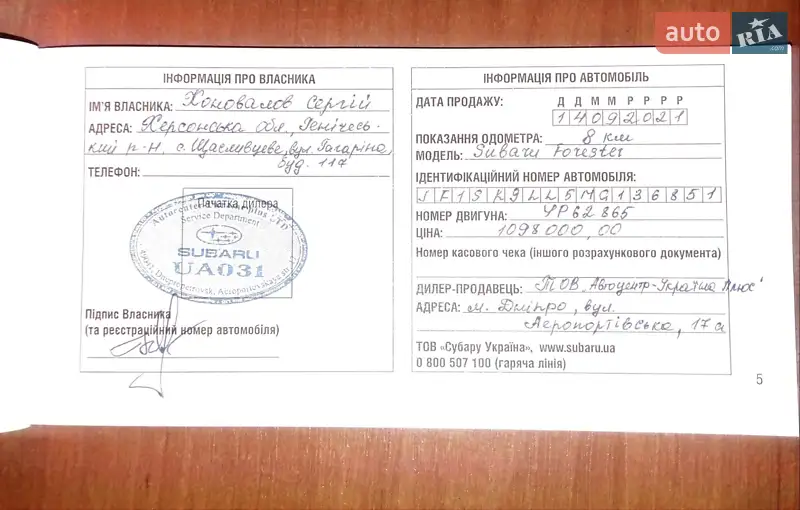 auto RIA .com
ІНФОРМАЦІЯ ПРО ВЛАСНИКА
ІМ'Я ВЛАСНИКА: Коновалов Сергій
АДРЕСА: Херсонська обл, Генічесь-
кий р-н, с. Щасливцеве, вул. Гагаріна,
буд. 117
ТЕЛЕФОН:
Печатка дилера
Service Department
SUBARU
UA031
Підпис Власника
(та реєстраційний номер автомобіля)
ІНФОРМАЦІЯ ПРО АВТОМОБІЛЬ
Д Д М М Р Р Р Р
ДАТА ПРОДАЖУ: 14092021
ПОКАЗАННЯ ОДОМЕТРА: 8 км
МОДЕЛЬ: Subaru Forester
ІДЕНТИФІКАЦІЙНИЙ НОМЕР АВТОМОБІЛЯ:
JF1SK9LL5MG136851
НОМЕР ДВИГУНА: YP62865
ЦІНА: 1098000,00
Номер касового чека (іншого розрахункового документа)
ДИЛЕР-ПРОДАВЕЦЬ: ТОВ „Автоцентр-Україна Плюс"
АДРЕСА: м. Дніпро, вул.
Аеропортівська, 17а
ТОВ «Субару Україна», www.subaru.ua
0 800 507 100 (гаряча лінія)
5